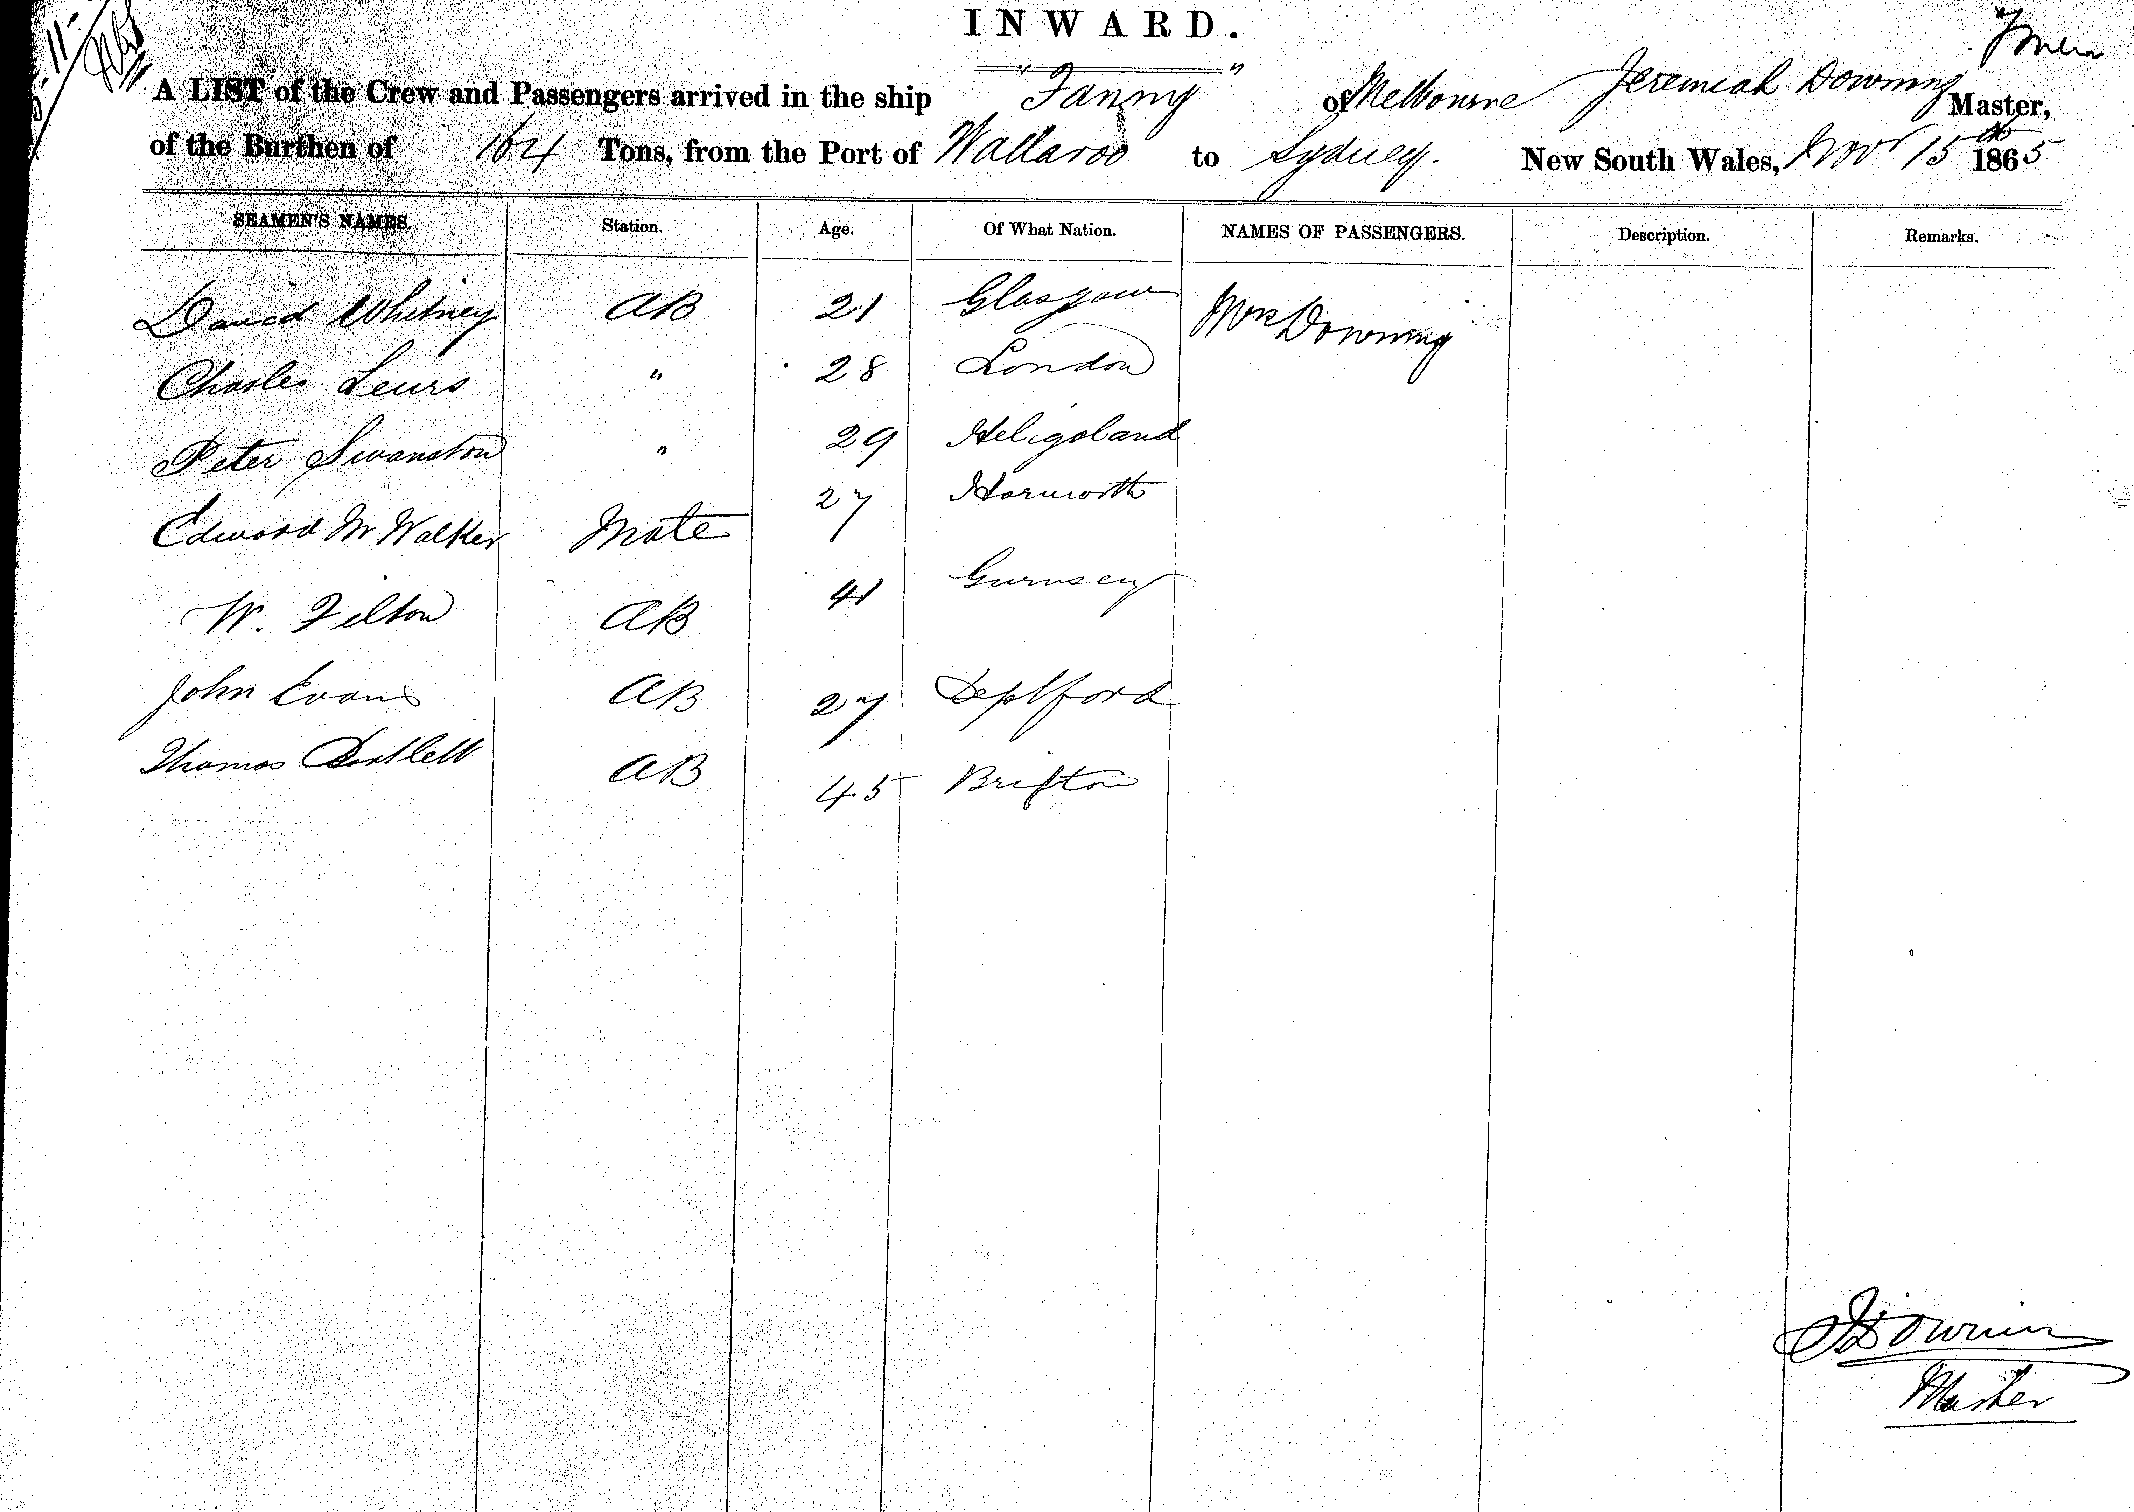 INWARD.
7 men
A LIST of the Crew and Passengers arrived in the ship "Fanny" of Melbourne Jeremiah Downing Master,
of the Burthen of 164 Tons, from the Port of Wallaroo to Sydney. New South Wales, Nov 15th 1865
SEAMEN'S NAMES. Station. Age. Of What Nation. NAMES OF PASSENGERS. Description. Remarks.
David Whitney AB 21 Glasgow Mrs Downing
Charles Leurs " 28 London
Peter Swanston " 29 Heligoland
Edward M Walker Mate 27 Harworth
W. Filton AB 41 Gurnsey
John Evans AB 27 Deptford
Thomas AB 45 Brixton
J Downing
Master